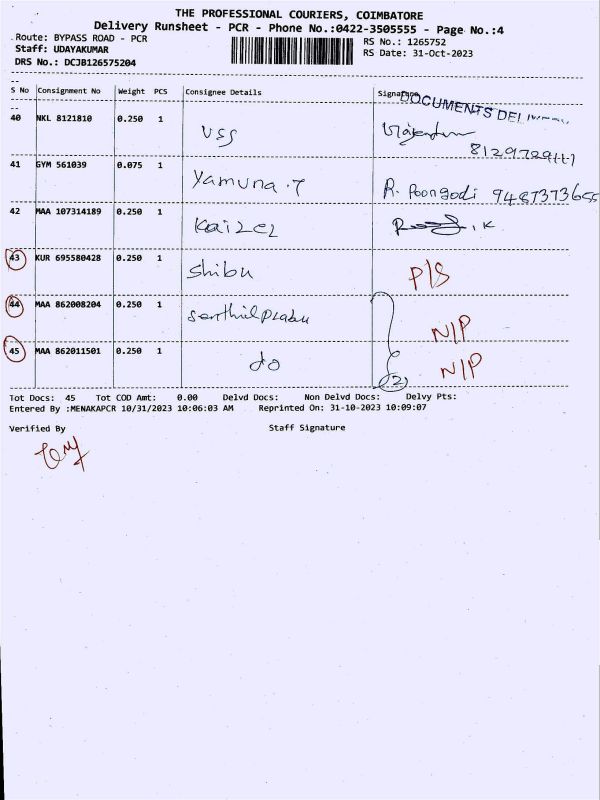 THE PROFESSIONAL COURIERS, COIMBATORE
Delivery Runsheet - PCR - Phone No.:0422-3505555 - Page No.:4
Route: BYPASS ROAD - PCR
RS No.: 1265752
Staff: UDAYAKUMAR
RS Date: 31-Oct-2023
DRS No.: DCJB126575204
S No Consignment No Weight PCS Consignee Details Signature
DOCUMENTS DEL
40 NKL 8121810 0.250 1 VSS
41 GYM 561039 0.075 1 Yamuna.T R. Poongodi 9487373655
42 MAA 107314189 0.250 1 Kaizel
43 KUR 695580428 0.250 1 Shibu P/S
44 MAA 862008204 0.250 1 Senthil Prabu N/P
45 MAA 862011501 0.250 1 do (2) N/P
Tot Docs: 45 Tot COD Amt: 0.00 Delvd Docs: Non Delvd Docs: Delvy Pts:
Entered By :MENAKAPCR 10/31/2023 10:06:03 AM Reprinted On: 31-10-2023 10:09:07
Verified By Staff Signature